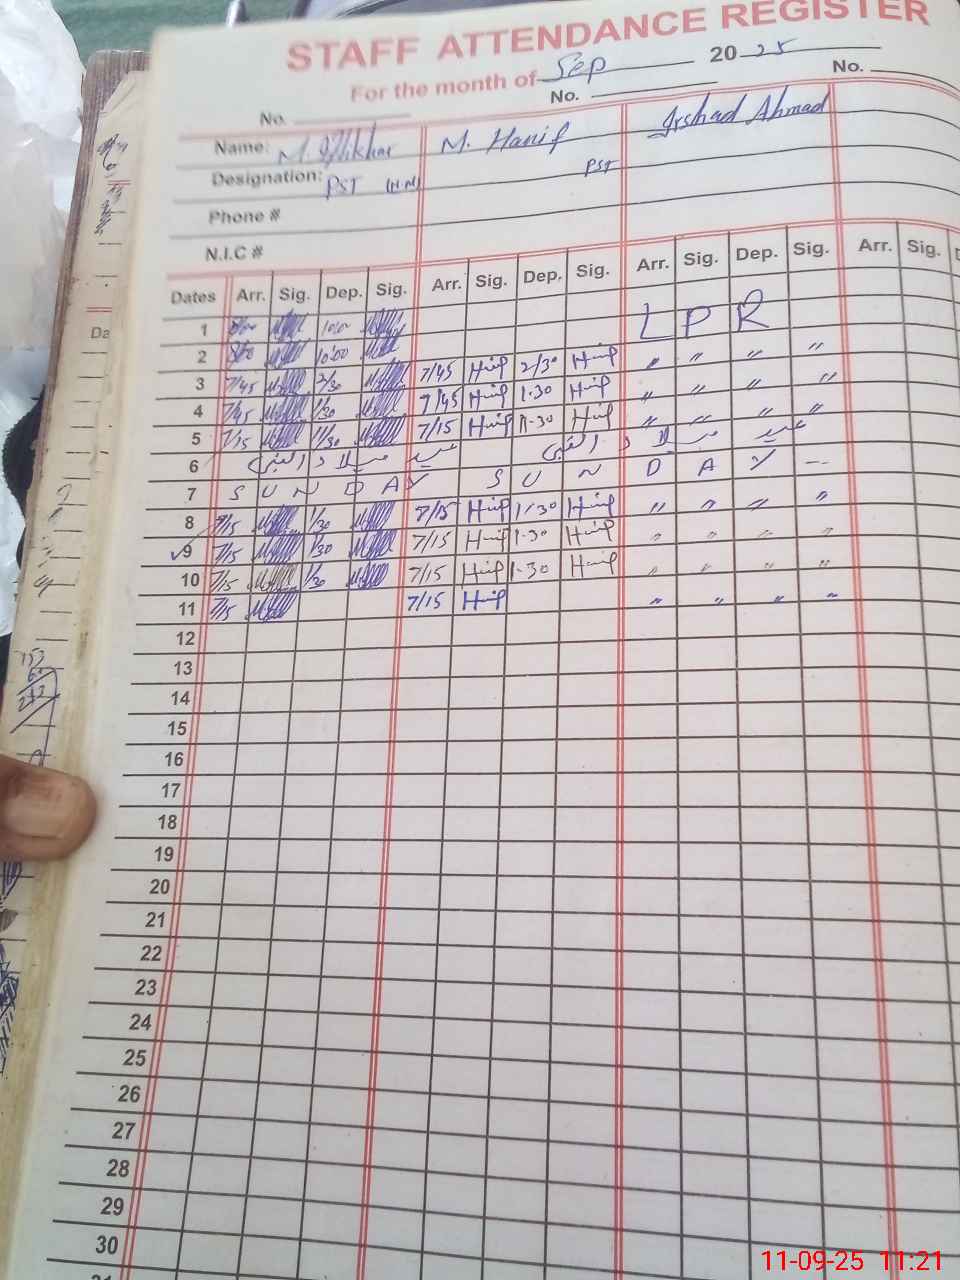 STAFF ATTENDANCE REGISTER
For the month of Sep 2025
No. No. No.
Name: M. Iftikhar M. Hanif Irshad Ahmad
Designation: PST (H.M) PST
Phone #
N.I.C #
Dates Arr. Sig. Dep. Sig. Arr. Sig. Dep. Sig. Arr. Sig. Dep. Sig. Arr. Sig.
1 8/00 10:00 L P R
2 8/00 10:00 " " " "
3 7/45 2/30 7/45 Hanif 2/30 Hanif " " " "
4 7/45 1/30 7/45 Hanif 1.30 Hanif " " " "
5 7/15 1/30 7/15 Hanif 1.30 Hanif " " " "
6 عید میلاد النبی عید میلاد النبی
7 S U N D A Y S U N D A Y
8 7/15 1/30 7/15 Hanif 1/30 Hanif " " " "
9 7/15 1/30 7/15 Hanif 1.30 Hanif " " " "
10 7/15 1/30 7/15 Hanif 1.30 Hanif " " " "
11 7/15 7/15 Hanif " " " "
12
13
14
15
16
17
18
19
20
21
22
23
24
25
26
27
28
29
30
31
11-09-25 11:21
Da
153